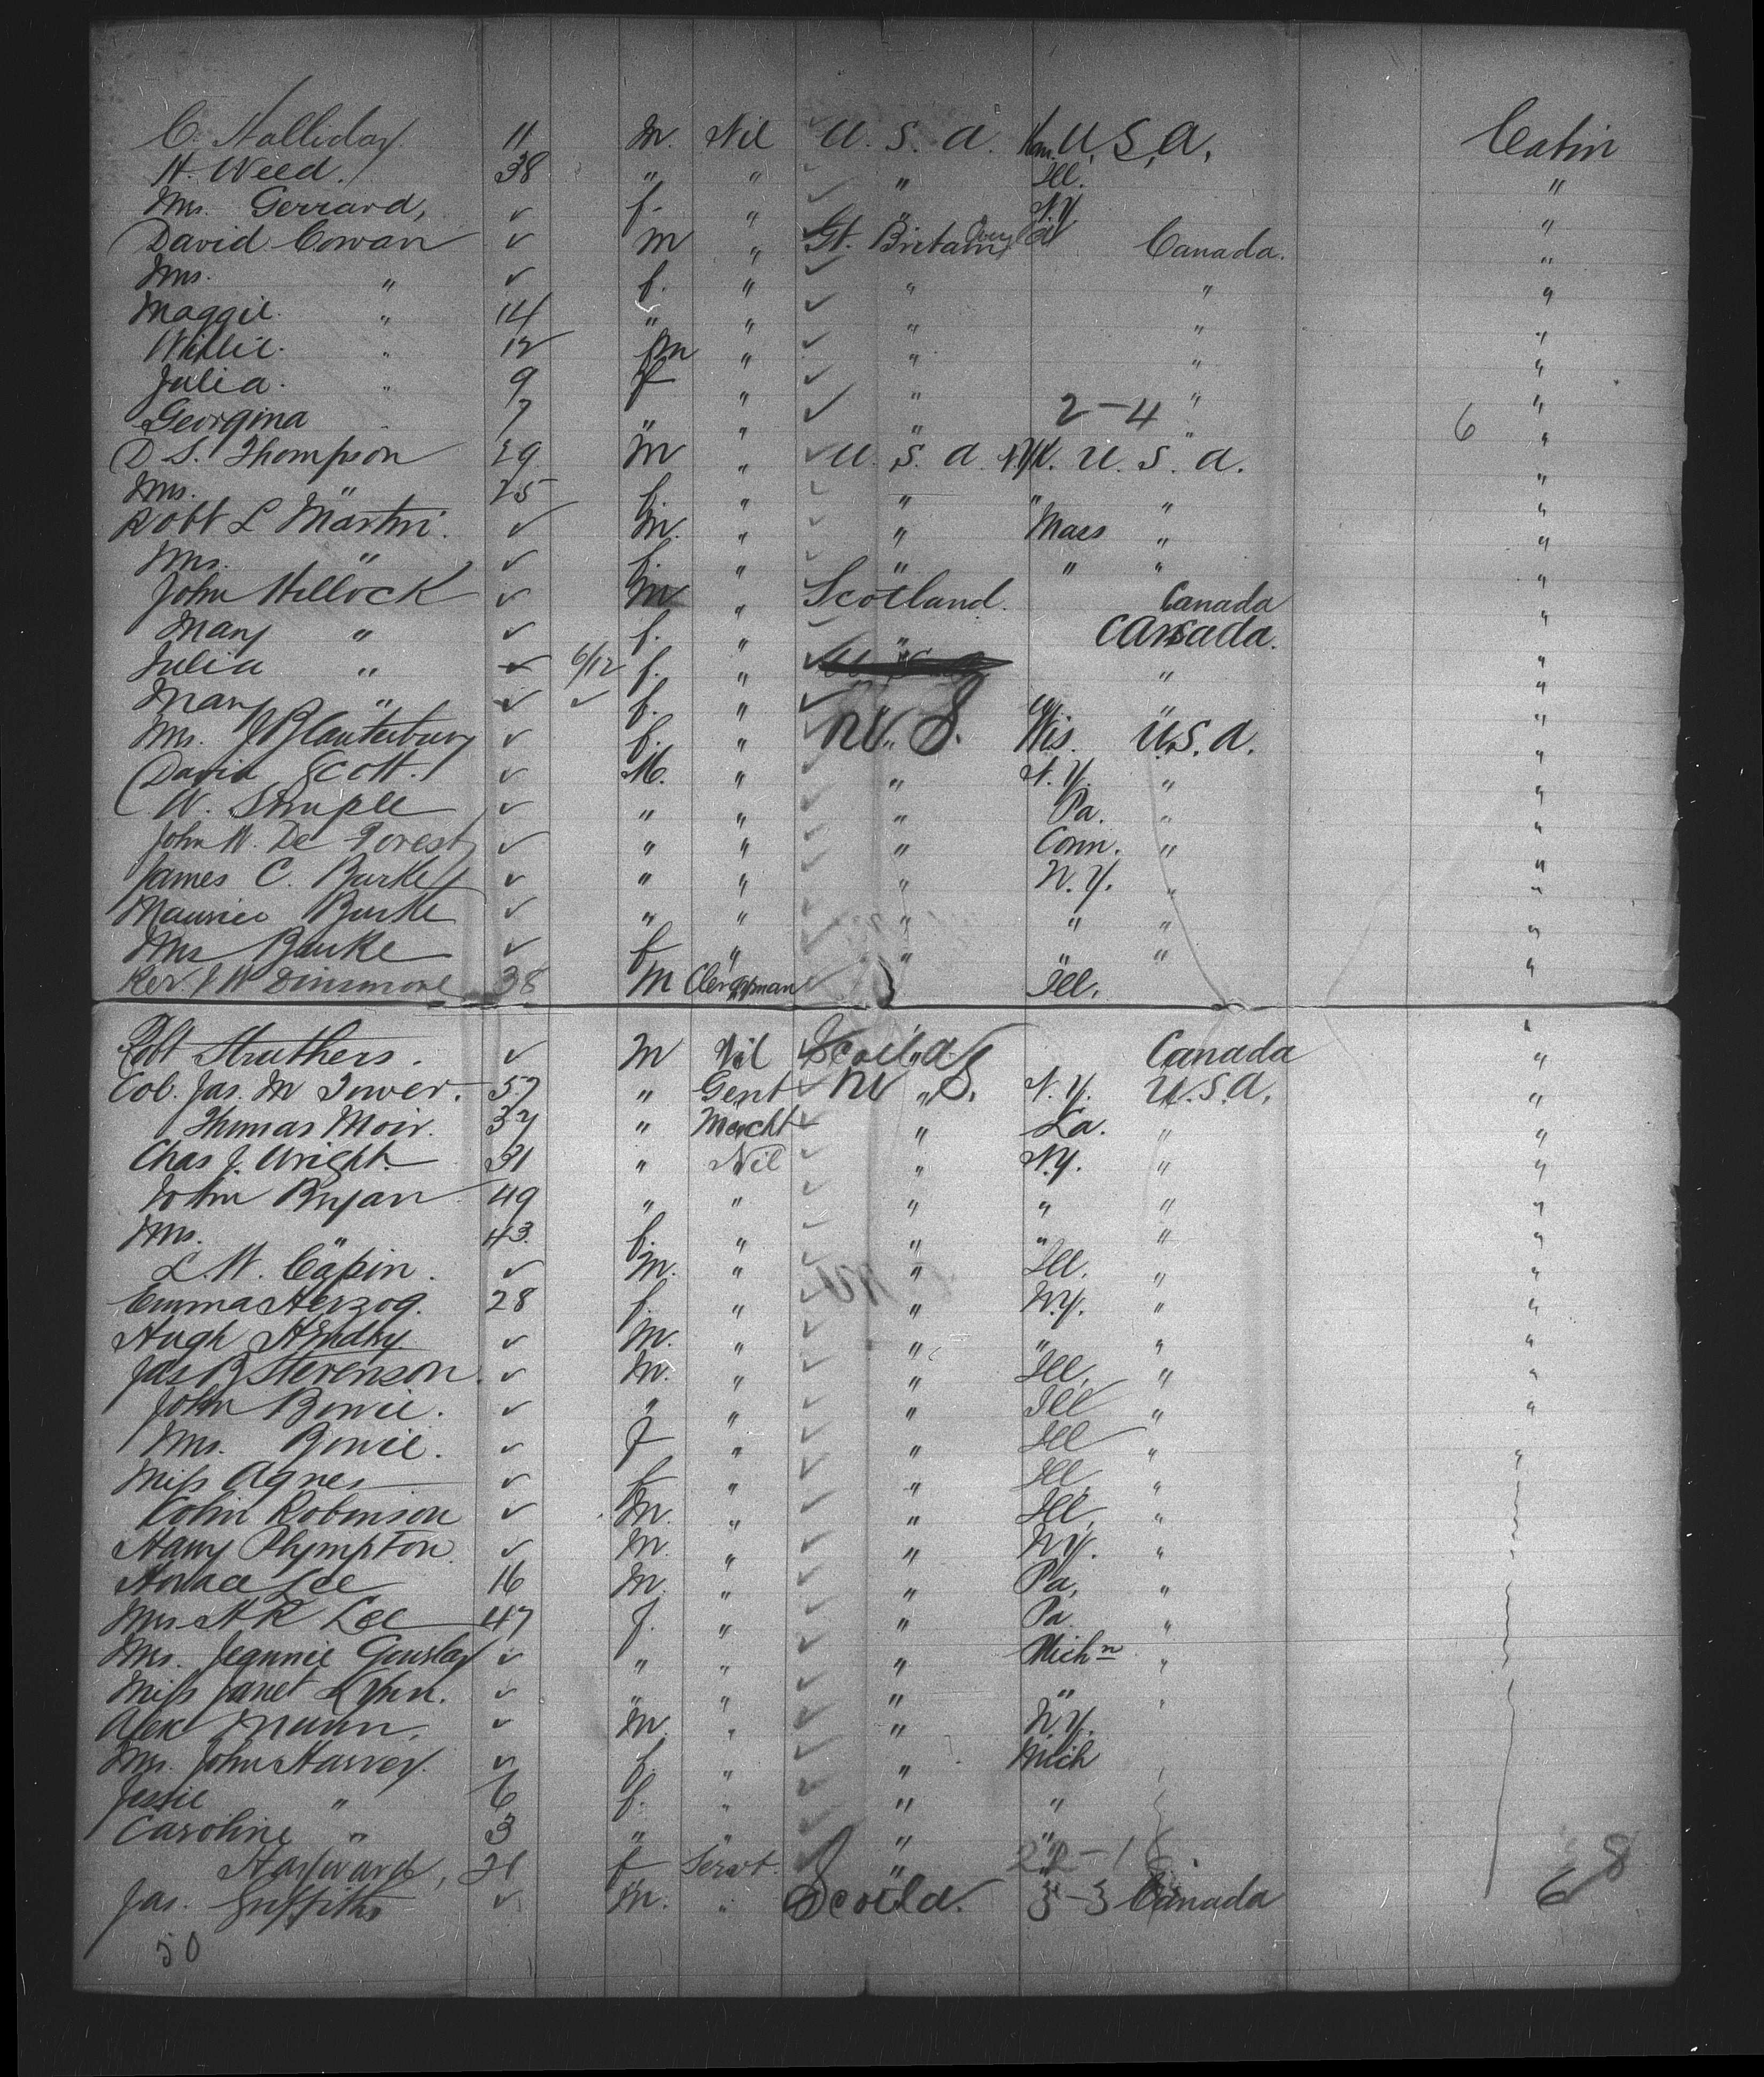 C. Halliday 11 M. Nil U. S. A. U.S.A. Cabin
H. Weed. 38 " " " Ill. "
Mrs. Gerrard, ✓ f. " " N.Y. "
David Cowan ✓ M " Gt. Britain Canada. "
Mrs. " ✓ f. " " " "
Maggie. " 14 " " " " "
Willie. " 12 M " " " "
Julia. " 9 f " " " "
Georgina 7 " " " 2-4 " 6 "
D S. Thompson 29 M " U. S. A N.Y. U. S. A. "
Mrs. " 25 f. " " " " "
Robt L Martin. ✓ M. " " Mass " "
Mrs. " ✓ f. " " " " "
John Hillock ✓ M " Scotland. Canada "
Mary " ✓ f. " " Canada. "
Julia " ✓ 6/12 f. " " "
Mary " ✓ ✓ f. " " "
Mrs. J B Canterbury ✓ f. " " Wis. U.S.A. "
David Scott. ✓ M. " " N.Y. " "
W. Semple ✓ " " " Pa. " "
John W. De Forest ✓ " " " Conn. " "
James C. Burke ✓ " " " N.Y. " "
Maurice Burke ✓ " " " " " "
Mrs Burke ✓ f " " " " "
Rev. J W Dinsmore 38 M Clergyman Ill. "
Robt Struthers. ✓ M Nil Scotld Canada "
Col. Jas. M Tower. 57 " Gent " N.Y. U.S.A. "
Thomas Moir. 37 " Mercht " La. " "
Chas J. Wright. 31 " Nil " N.Y. " "
John Bryan 49 " " " " " "
Mrs. " 43. f. " " " " "
L. W. Capin. ✓ M. " " Ill. " "
Emma Herzog. 28 f. " " N.Y. " "
Hugh Hendry ✓ M. " " " " "
Jas B Stevenson. ✓ M. " " Ill. " "
John Bowie. ✓ " " " Ill " "
Mrs. Bowie. ✓ f " " Ill " "
Miss Agnes ✓ f " " Ill. "
Colin Robinson ✓ M. " " Ill. "
Harry Plympton. ✓ M. " " N.Y. "
Horace Lee 16 M. " " Pa. "
Mrs H R Lee 47 f. " " Pa. "
Mrs. Jeannie Gourlay ✓ " " " Michn "
Miss Janet Lynn. ✓ " " " " "
Alex Munn. ✓ M. " " N.Y.
Mrs. John Harvey. ✓ f. " " Mich
Jessie " 6 f. " " "
Caroline " 3 " " " "
Hayward, 21 f Servt. " 22-18 8
Jas. Griffiths ✓ M. " Scotld. 3-3 Canada 6
50